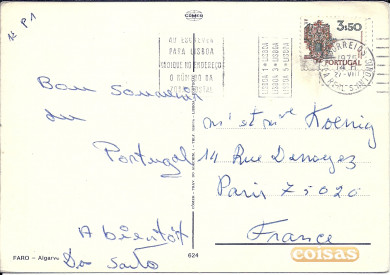 COMER
1º P1
AO ESCREVER
PARA LISBOA
INDIQUE NO ENDEREÇO
O NÚMERO DA
LISBOA 1 • LISBOA
LISBOA 3 • LISBOA
LISBOA 5 • LISBOA
3$50
CORREIOS
PORTUGAL
1975
Bon Souvenir
du
Portugal
A bientôt
Dos Santos
m' et me Koenig
14 Rue Danoyez
Paris 75020
France
FARO – Algarve
624
coisas